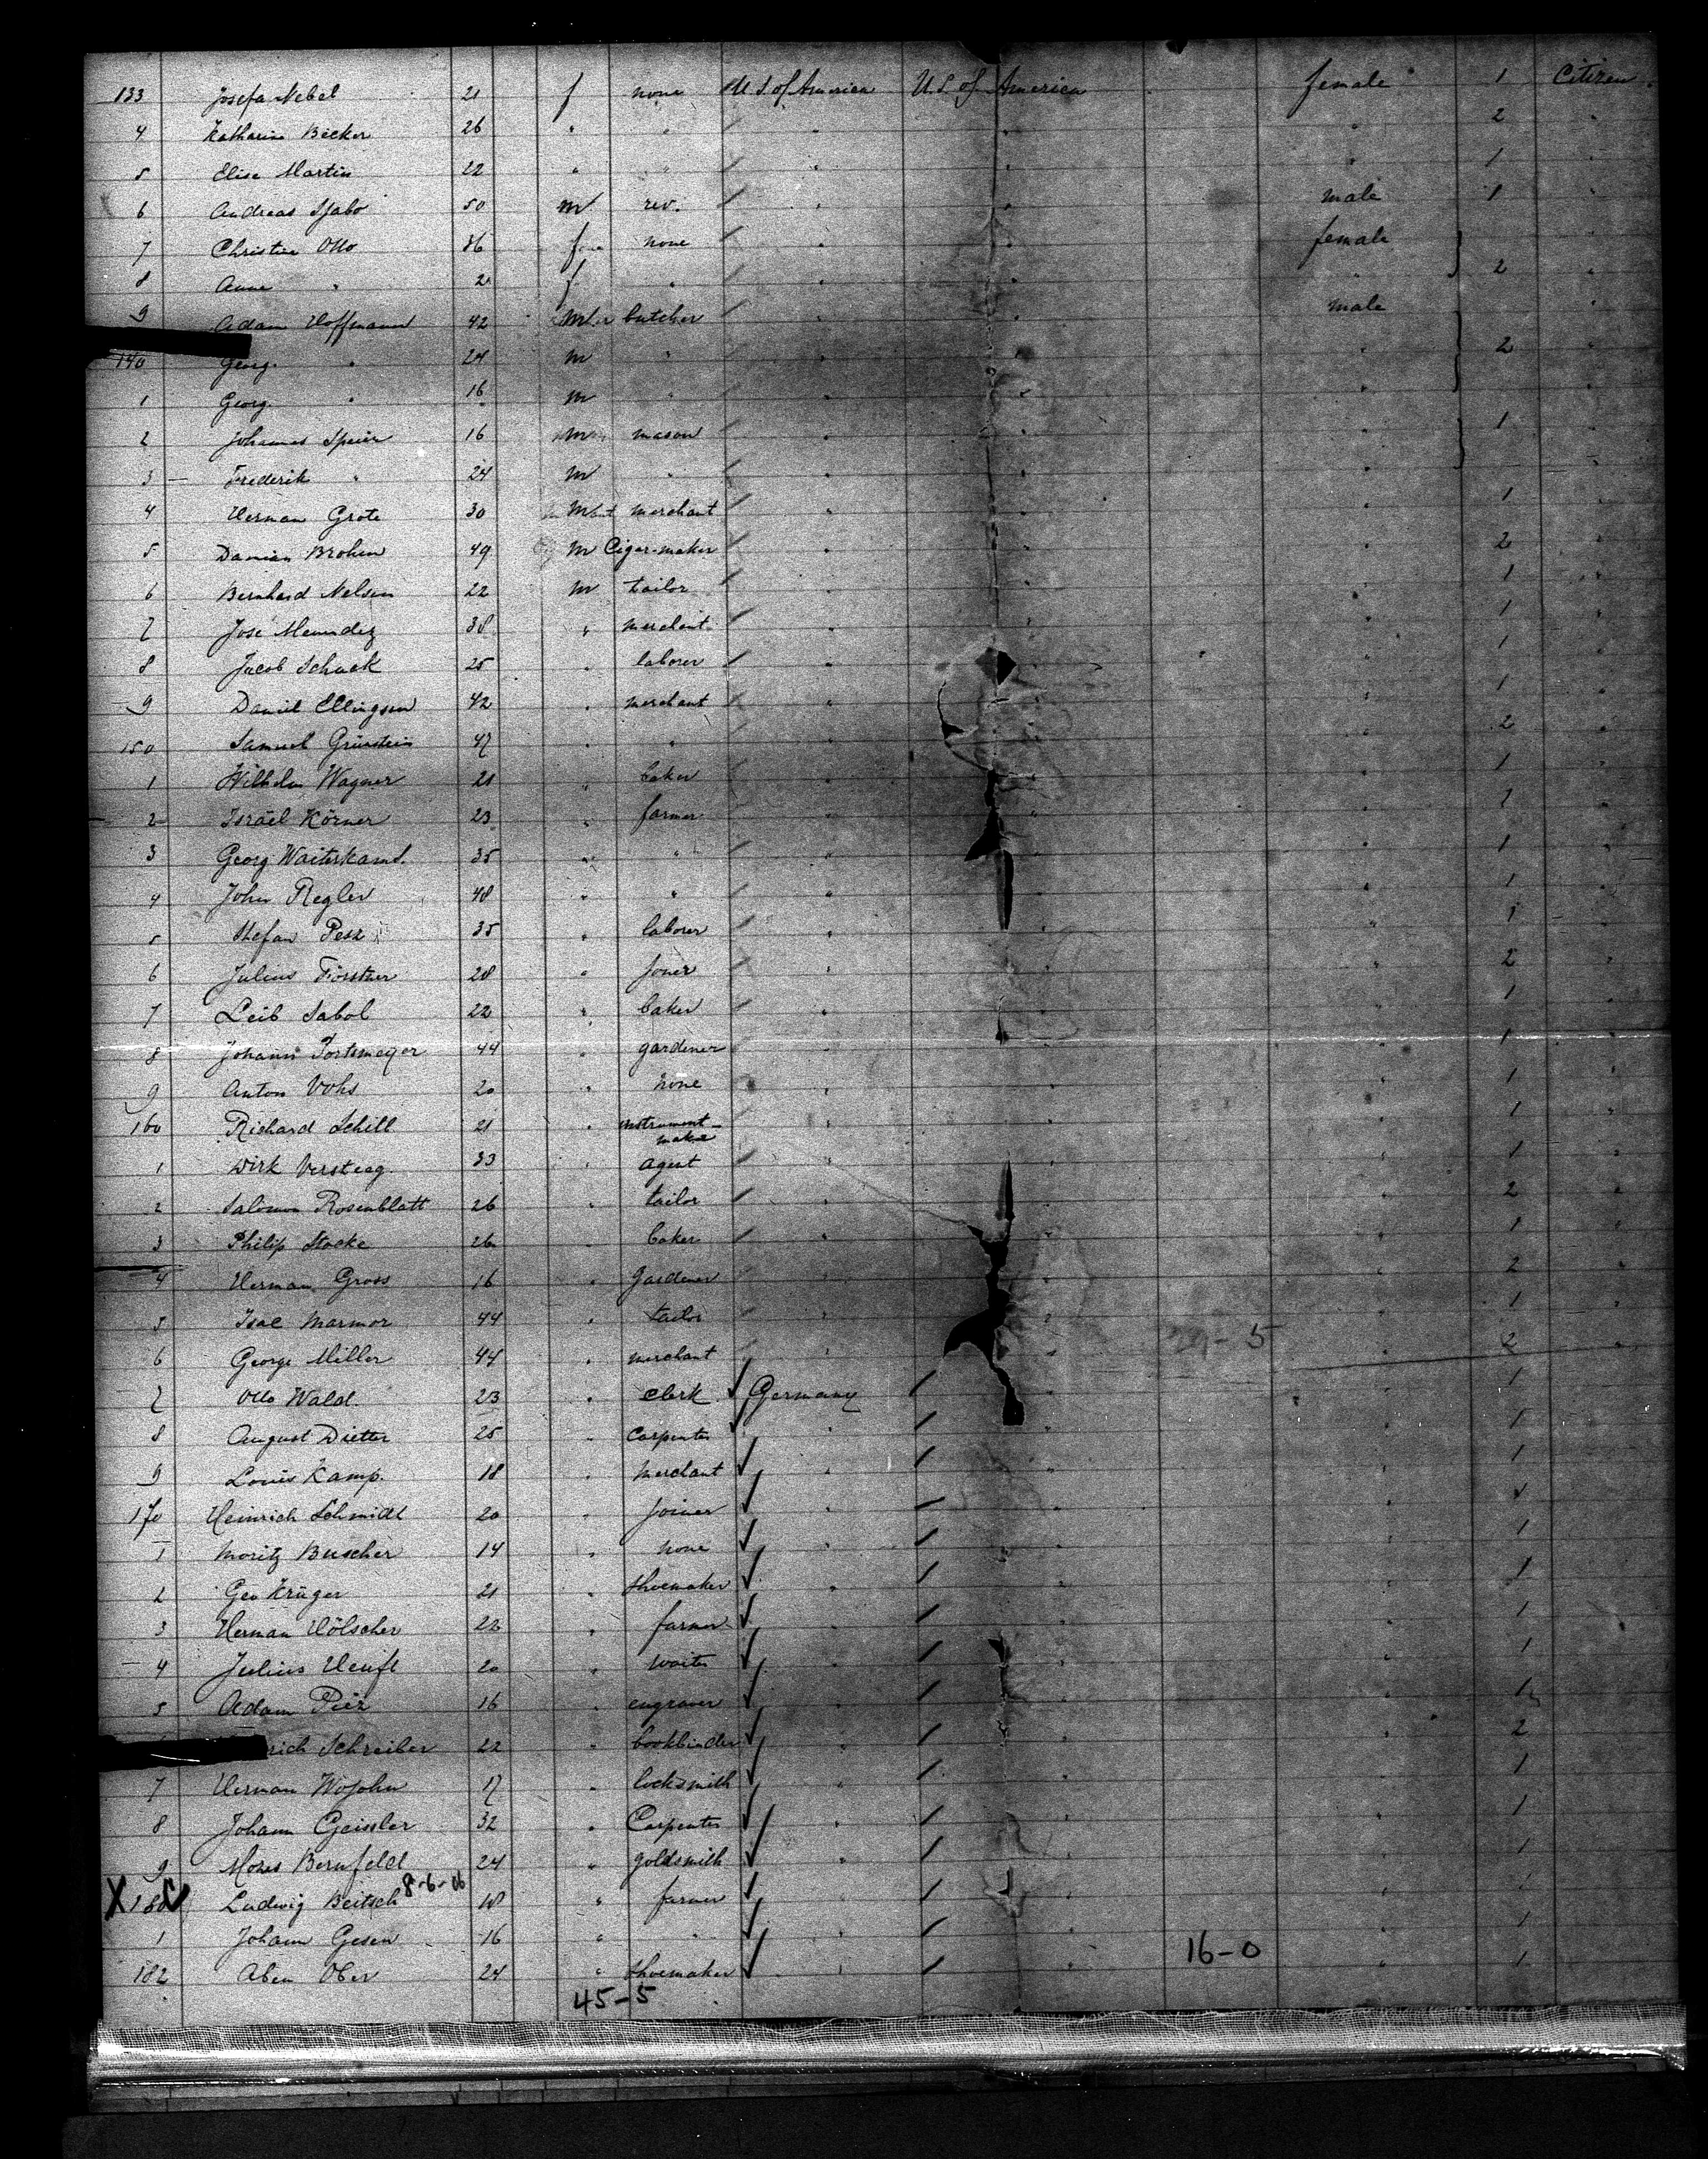 133 Josefa Nebel 21 f none U.S. of America U.S. of America female 1 Citizen
4 Katharina Becker 26 " " " " " 2 "
5 Elise Martin 22 " " " " " 1 "
6 Andreas Szabo 50 m rev. " " male 1 "
7 Christine Otto 36 f none " " female
8 Anna " 2 f " " " " 2 "
9 Adam Hoffmann 42 m butcher " " male "
140 Georg " 24 m " " " " 2 "
1 Georg " 16 m " " " "
2 Johannes Speier 16 m mason " " " 1 "
3 Frederik " 24 m " " " "
4 Herman Grote 30 m merchant " " " 1 "
5 Damian Brohm 49 m Cigar-maker " " " 2 "
6 Bernhard Nelsen 22 m tailor " " " 1 "
7 Jose Menendez 38 " merchant " " " 1 "
8 Jacob Schuck 25 " laborer " " " 1
9 Daniel Ellingsen 42 " merchant " " 1 "
150 Samuel Grünstein 47 " " " " 2 "
1 Wilhelm Wagner 21 " baker " " " 1 "
2 Israël Körner 23 " farmer " " " 1 "
3 Georg 35 " " " " 1 "
4 John Regler 48 " " " " " 1 "
5 Stefan Pesz 35 " laborer " " " 1
6 Julius Förstner 28 " joner " " " 2 "
7 Leib Sabol 22 " baker " " 1 "
8 Johann Portsmeyer 44 " gardener " " 1 "
9 Anton Vohs 20 " none " " " 1 "
160 Richard Schill 21 " instrument-
maker " " 1 "
1 Dirk Versteeg 33 " agent " " " 1 "
2 Salomon Rosenblatt 26 " tailor " " " 2 "
3 Philip Stocke 26 " baker " " " 1 "
4 Herman Gross 16 " gardener " " " 2 "
5 Isac Marmor 44 " tailor " " " 1 "
6 George Miller 44 " merchant " " " 2 "
7 Otto Wald 23 " clerk Germany " " 1
8 August Dietter 25 " carpenter " " " 1
9 Louis Kamp. 18 " merchant " " " 1
170 Heinrich Schmidt 20 " joiner " " "
1 Moritz Buscher 14 " none " " " 1
2 Geo Krüger 21 " shoemaker " " " 1
3 Herman Hölscher 22 " farmer " " " 1
4 Julius Heuft 20 " waiter " " " 1
5 Adam 16 " engraver " " " 1
rich Schreiber 22 " bookbinder " " " 2
7 Herman Wojohn 17 " locksmith " " " 1
8 Johann Geissler 32 " Carpenter " " " 1
9 Moses Bernfeld 24 " goldsmith " " " 1
X 180 Ludwig Beitsch 8-6-06 18 " farmer " " "
1 Johann Gesen 16 " " " " " 1
16-0
182 Aben Ober 24 " shoemaker " " " 1
45-5